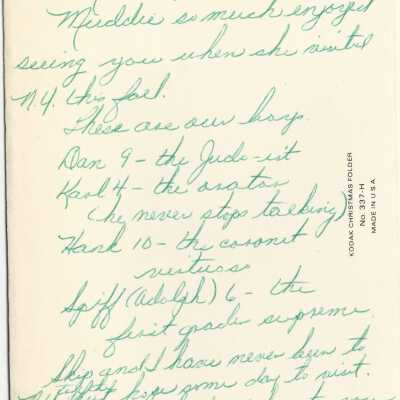 Muddie so much enjoyed
seeing you when she visited
N.Y. this fall.
These are our boys.
Dan 9 - the Judo-ist
Karl 4 - the orator
(he never stops talking)
Hank 10 - the coronet
virtuoso
Spiff (Adolph) 6 - the
first grader supreme.
Skip and I have never been to
but hope some day to visit.
KODAK CHRISTMAS FOLDER
No. 337-H
MADE IN U.S.A.